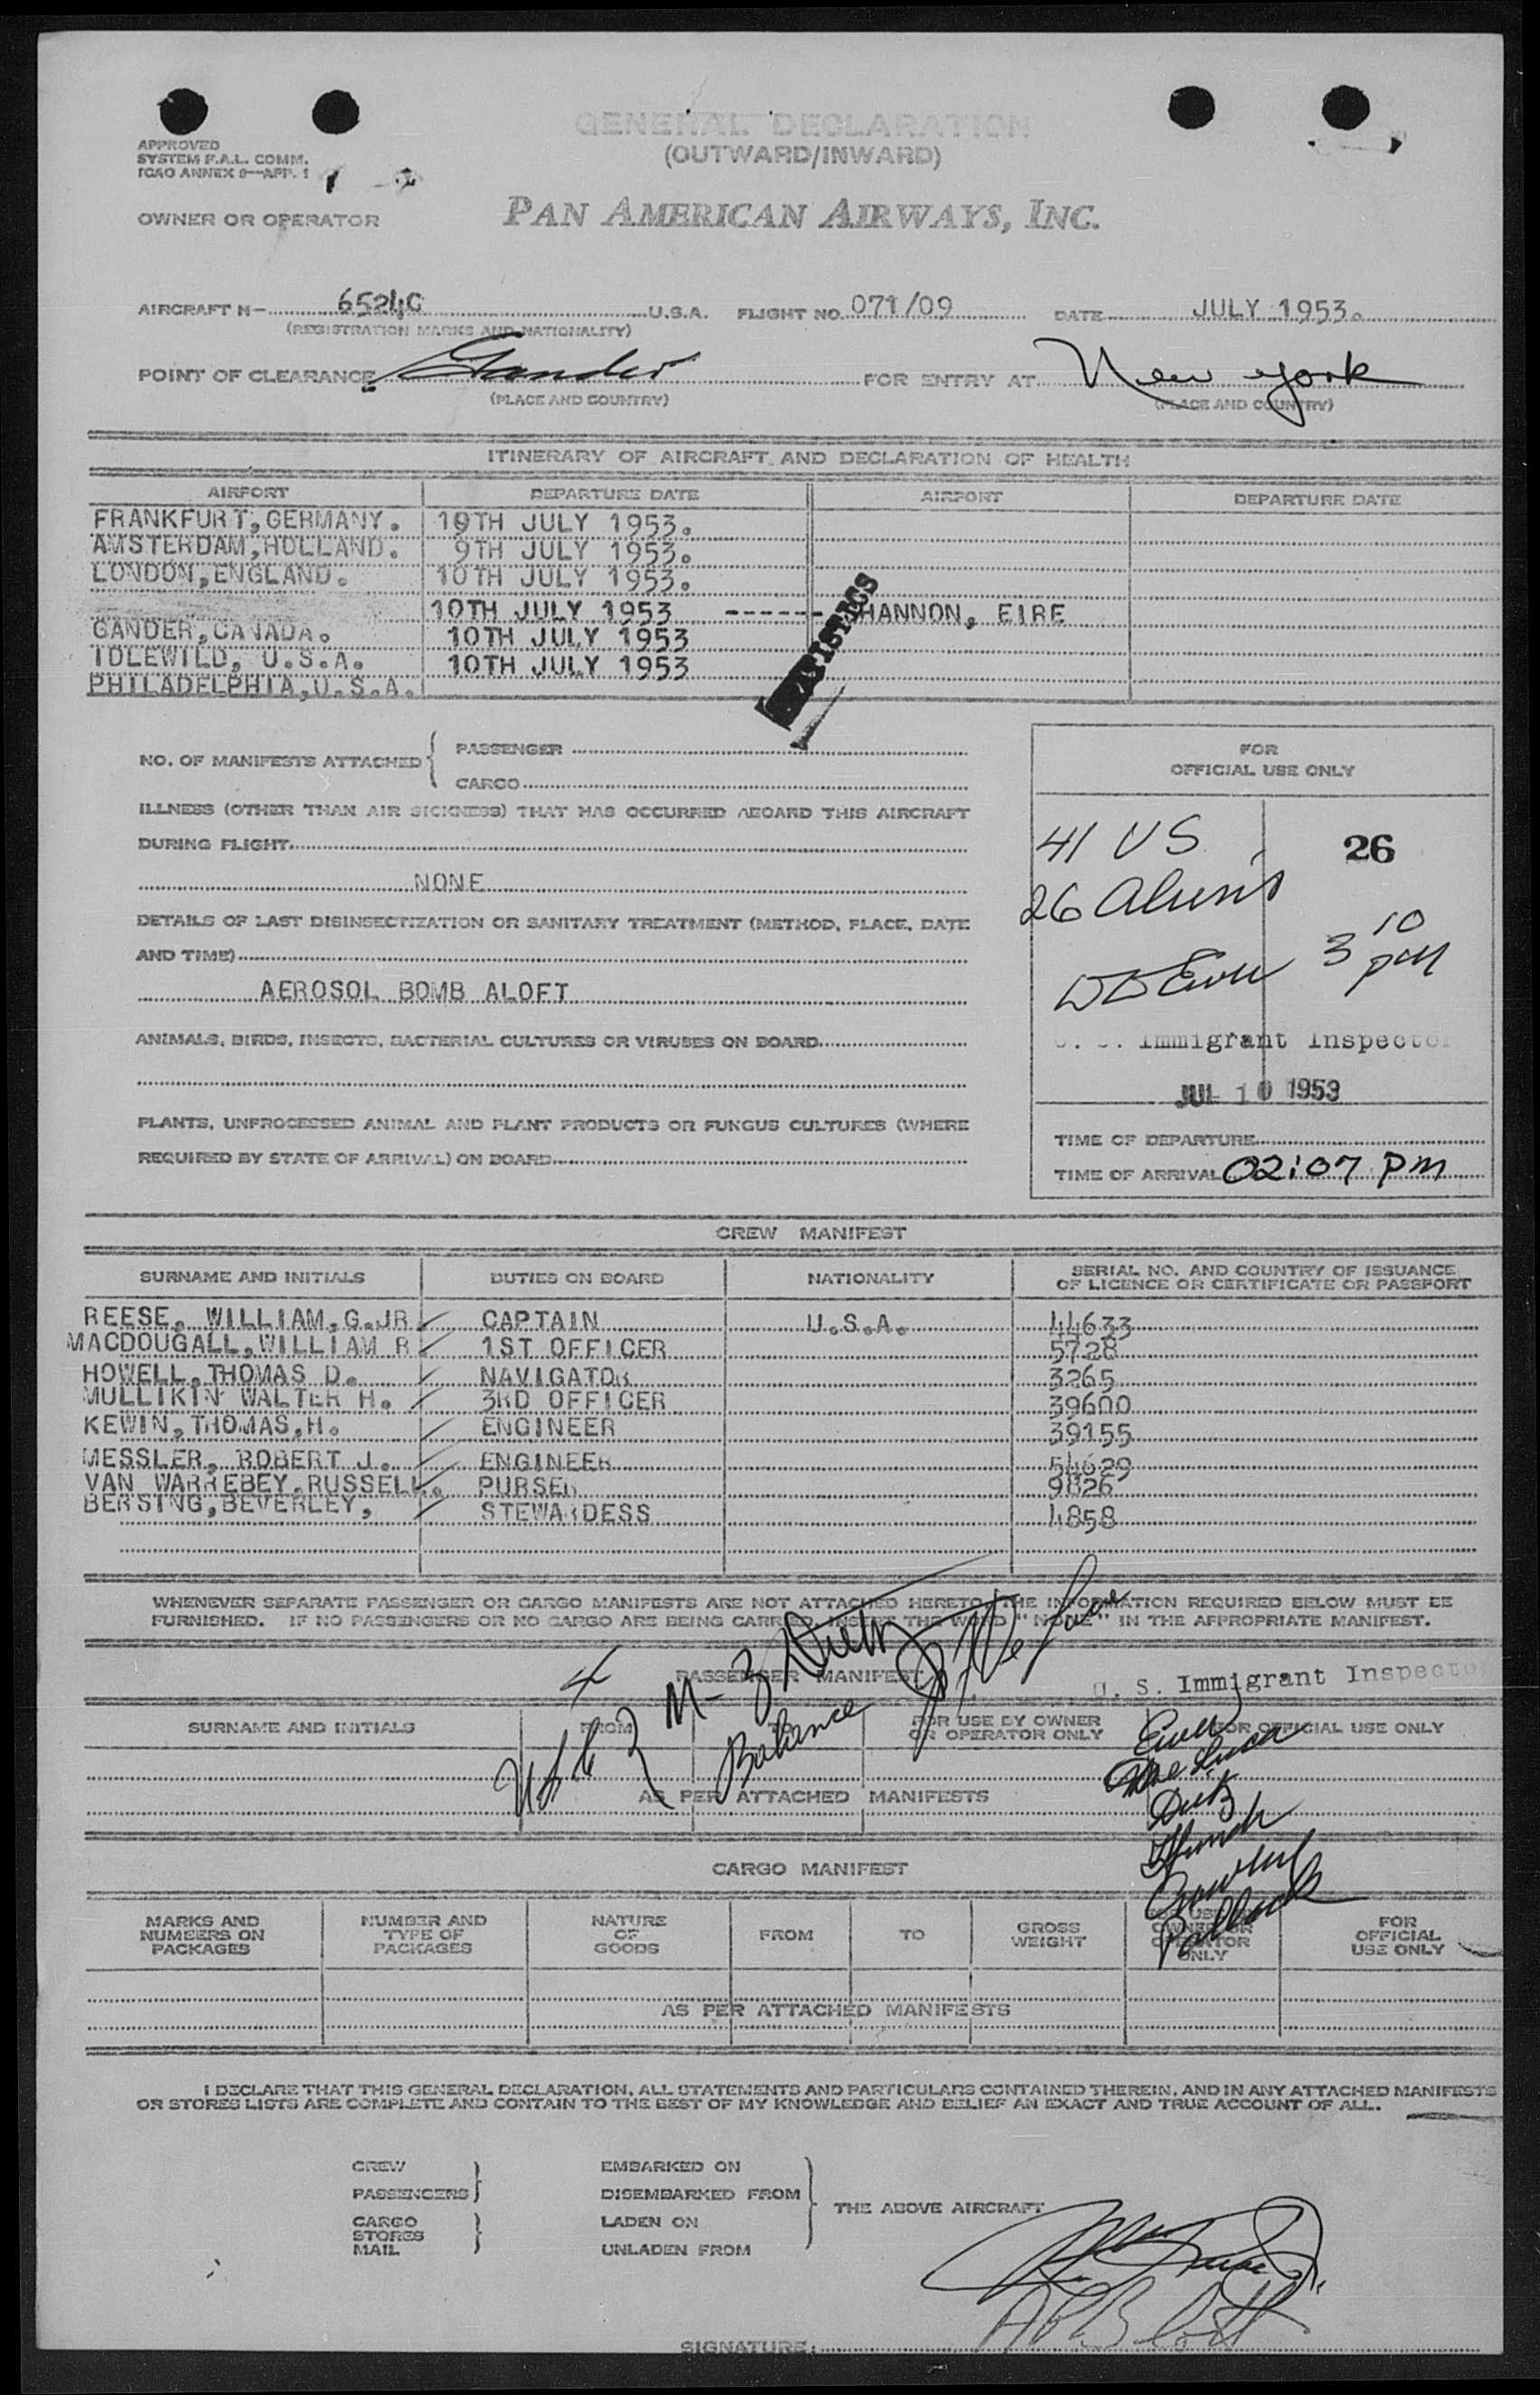 GENERAL DECLARATION
(OUTWARD/INWARD)
APPROVED
SYSTEM F.A.L. COMM.
ICAO ANNEX 9—APP. 1
OWNER OR OPERATOR
PAN AMERICAN AIRWAYS, INC.
AIRCRAFT N- U.S.A. FLIGHT NO. 071/09 DATE JULY 1953.
(REGISTRATION MARKS AND NATIONALITY)
POINT OF CLEARANCE Gander FOR ENTRY AT New York
(PLACE AND COUNTRY) (PLACE AND COUNTRY)
ITINERARY OF AIRCRAFT AND DECLARATION OF HEALTH
AIRPORT DEPARTURE DATE AIRPORT DEPARTURE DATE
FRANKFURT, GERMANY. JULY 1953.
AMSTERDAM, HOLLAND. 9TH JULY 1953.
LONDON, ENGLAND. 10TH JULY 1953.
10TH JULY 1953 ------ SHANNON, EIRE
GANDER, CANADA. 10TH JULY 1953
IDLEWILD, U.S.A. 10TH JULY 1953
PHILADELPHIA, U.S.A.
STATISTICS
NO. OF MANIFESTS ATTACHED { PASSENGER
CARGO
ILLNESS (OTHER THAN AIR SICKNESS) THAT HAS OCCURRED ABOARD THIS AIRCRAFT
DURING FLIGHT
NONE
DETAILS OF LAST DISINSECTIZATION OR SANITARY TREATMENT (METHOD, PLACE, DATE
AND TIME)
AEROSOL BOMB ALOFT
ANIMALS, BIRDS, INSECTS, BACTERIAL CULTURES OR VIRUSES ON BOARD
PLANTS, UNPROCESSED ANIMAL AND PLANT PRODUCTS OR FUNGUS CULTURES (WHERE
REQUIRED BY STATE OF ARRIVAL) ON BOARD
FOR
OFFICIAL USE ONLY
41 US 26
26 Aliens
3 10 pm
U. S. Immigrant Inspector
JUL 10 1953
TIME OF DEPARTURE
TIME OF ARRIVAL 02:07 PM
CREW MANIFEST
SURNAME AND INITIALS DUTIES ON BOARD NATIONALITY SERIAL NO. AND COUNTRY OF ISSUANCE
OF LICENCE OR CERTIFICATE OR PASSPORT
REESE, WILLIAM, G. JR. CAPTAIN U.S.A. 44633
MACDOUGALL, WILLIAM R 1ST OFFICER 5728
HOWELL, THOMAS D. NAVIGATOR 3265
MULLIKIN WALTER H. 3RD OFFICER 39600
KEWIN, THOMAS, H. ENGINEER 39155
MESSLER, ROBERT J. ENGINEER 54629
VAN WARREBEY, RUSSELL. PURSER 9826
BERSING, BEVERLEY, STEWARDESS 4858
WHENEVER SEPARATE PASSENGER OR CARGO MANIFESTS ARE NOT ATTACHED HERETO, THE INFORMATION REQUIRED BELOW MUST BE
FURNISHED. IF NO PASSENGERS OR NO CARGO ARE BEING CARRIED, INSERT THE WORD "NONE" IN THE APPROPRIATE MANIFEST.
PASSENGER MANIFEST
U. S. Immigrant Inspector
SURNAME AND INITIALS FROM TO FOR USE BY OWNER
OR OPERATOR ONLY FOR OFFICIAL USE ONLY
Balance
AS PER ATTACHED MANIFESTS
CARGO MANIFEST
MARKS AND
NUMBERS ON
PACKAGES NUMBER AND
TYPE OF
PACKAGES NATURE
OF
GOODS FROM TO GROSS
WEIGHT FOR USE BY
OWNER OR
OPERATOR
ONLY FOR
OFFICIAL
USE ONLY
AS PER ATTACHED MANIFESTS
I DECLARE THAT THIS GENERAL DECLARATION, ALL STATEMENTS AND PARTICULARS CONTAINED THEREIN, AND IN ANY ATTACHED MANIFESTS
OR STORES LISTS ARE COMPLETE AND CONTAIN TO THE BEST OF MY KNOWLEDGE AND BELIEF AN EXACT AND TRUE ACCOUNT OF ALL.
CREW EMBARKED ON
PASSENGERS DISEMBARKED FROM
THE ABOVE AIRCRAFT
CARGO LADEN ON
STORES
MAIL UNLADEN FROM
SIGNATURE: